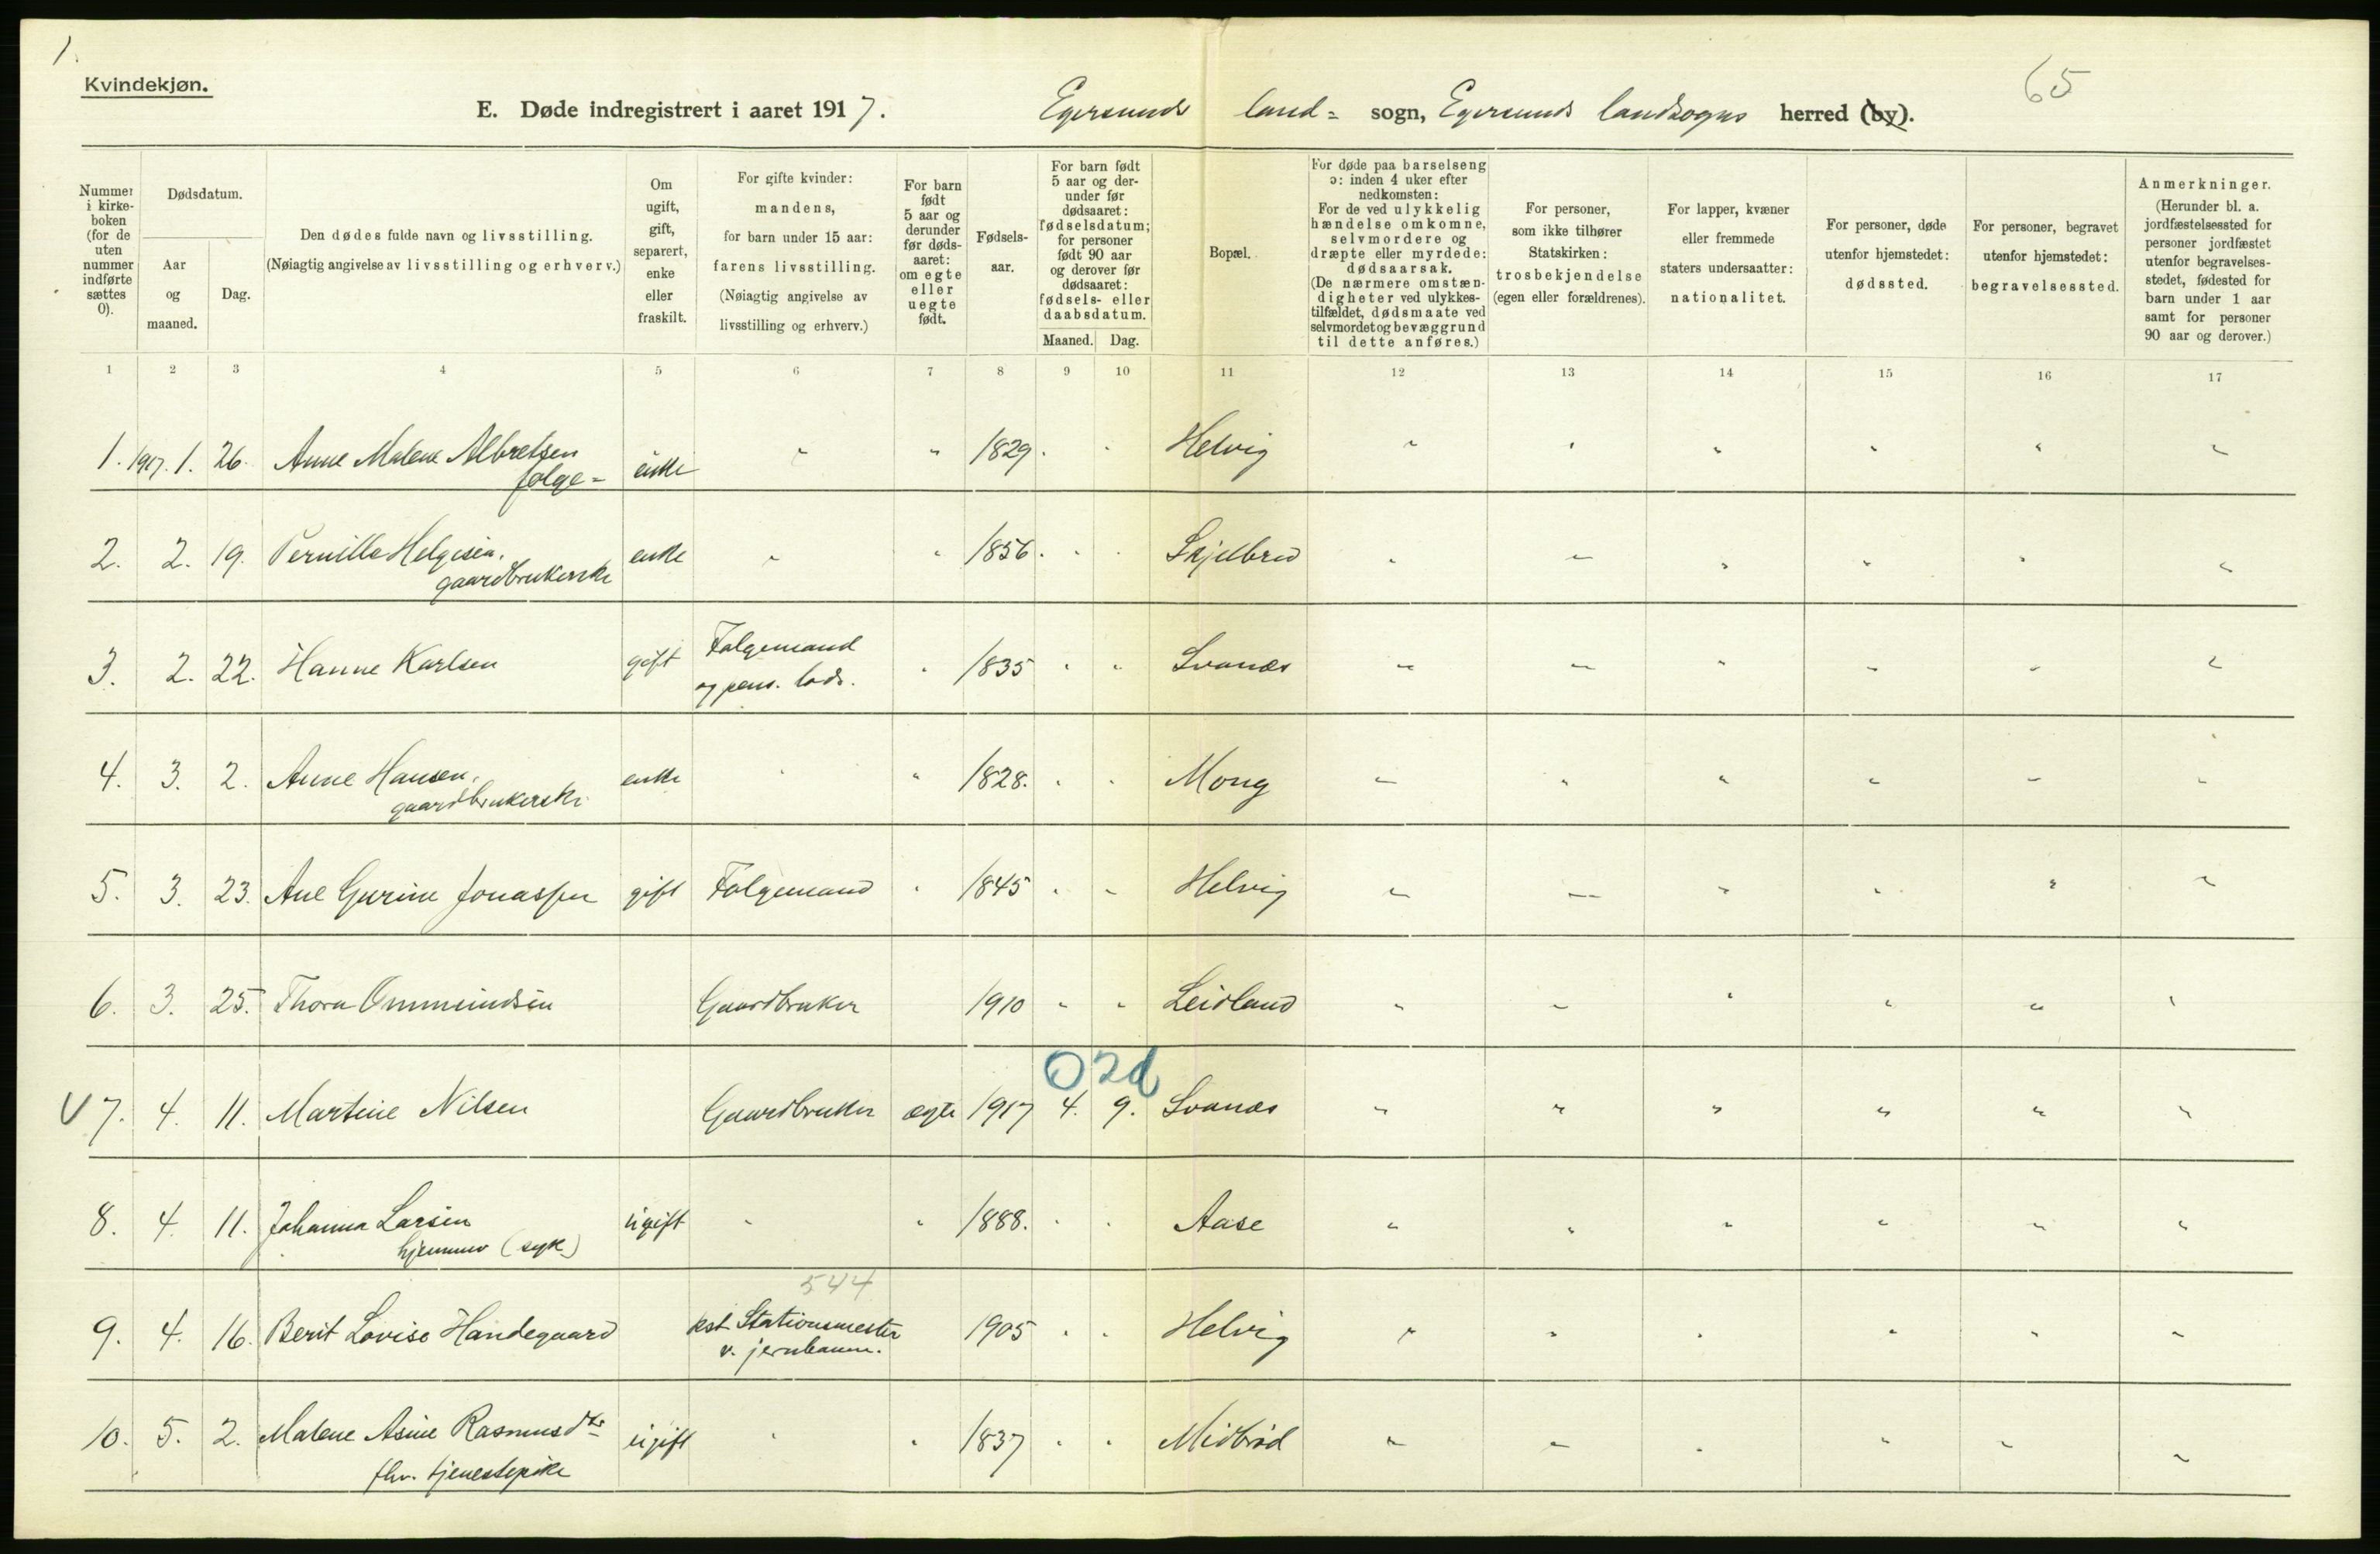 1.
Kvindekjøn.
65
E. Døde indregistrert i aaret 1917. Egersunds land= sogn, Egersunds landsogns herred (by).
Nummer i kirke-boken (for de uten nummer indførte sættes 0).
Dødsdatum.
Aar og maaned.
Dag.
Den dødes fulde navn og livsstilling.
(Nøiagtig angivelse av livsstilling og erhverv.)
Om ugift, gift, separert, enke eller fraskilt.
For gifte kvinder: mandens, for barn under 15 aar: farens livsstilling. (Nøiagtig angivelse av livsstilling og erhverv.)
For barn født 5 aar og derunder før døds-aaret: om egte eller uegte født.
Fødsels-aar.
For barn født 5 aar og der-under før dødsaaret: fødselsdatum; for personer født 90 aar og derover før dødsaaret: fødsels- eller daabsdatum.
Maaned. Dag.
Bopæl.
For døde paa barselseng ɔ: inden 4 uker efter nedkomsten: For de ved ulykkelig hændelse omkomne, selvmordere og dræpte eller myrdede: dødsaarsak. (De nærmere omstæn-digheter ved ulykkes-tilfældet, dødsmaate ved selvmordet og bevæggrund til dette anføres.)
For personer, som ikke tilhører Statskirken: trosbekjendelse (egen eller forældrenes).
For lapper, kvæner eller fremmede staters undersaatter: nationalitet.
For personer, døde utenfor hjemstedet: dødssted.
For personer, begravet utenfor hjemstedet: begravelsessted.
Anmerkninger. (Herunder bl. a. jordfæstelsessted for personer jordfæstet utenfor begravelses-stedet, fødested for barn under 1 aar samt for personer 90 aar og derover.)
1 2 3 4 5 6 7 8 9 10 11 12 13 14 15 16 17
1. 1917. 1. 26. Anne Malene Albretsen enke " " 1829. " Helvig " " " " " "
folge=
2. 2. 19. Pernille Helgesen, enke " " 1856. " " Skjelbred " " " " " "
gaardbrukerske
3. 2. 22. Hanne Karlsen gift Folgemand " 1835 " " Svanes " " " " " "
og pens. lods.
4. 3. 2. Anne Hansen, enke " " 1828. " " Mong " " " " " "
gaardbrukerske
5. 3. 23. Ane Gurine Jonassen gift Folgemand " 1845 " " Helvig " " " " " "
6. 3. 25. Thora Ommundsen Gaardbruker 1910 " " Leidland " " " " " "
0 2d
V 7. 4. 11. Martine Nilsen Gaardbruker ægte 1917 4. 9. Svanes " " " " " "
8. 4. 11. Johanna Larsen ugift " " 1888. " " Aase " " " " " "
hjemme (syk)
544
9. 4. 16. Berit Lovise Handegaard kst Stationsmester 1905 " " Helvig " " " " " "
v. jernbanen.
10. 5. 2. Malene Asine Rasmusdtr ugift " " 1837 " " Midbrød " " " " " "
fhv. tjenestepike